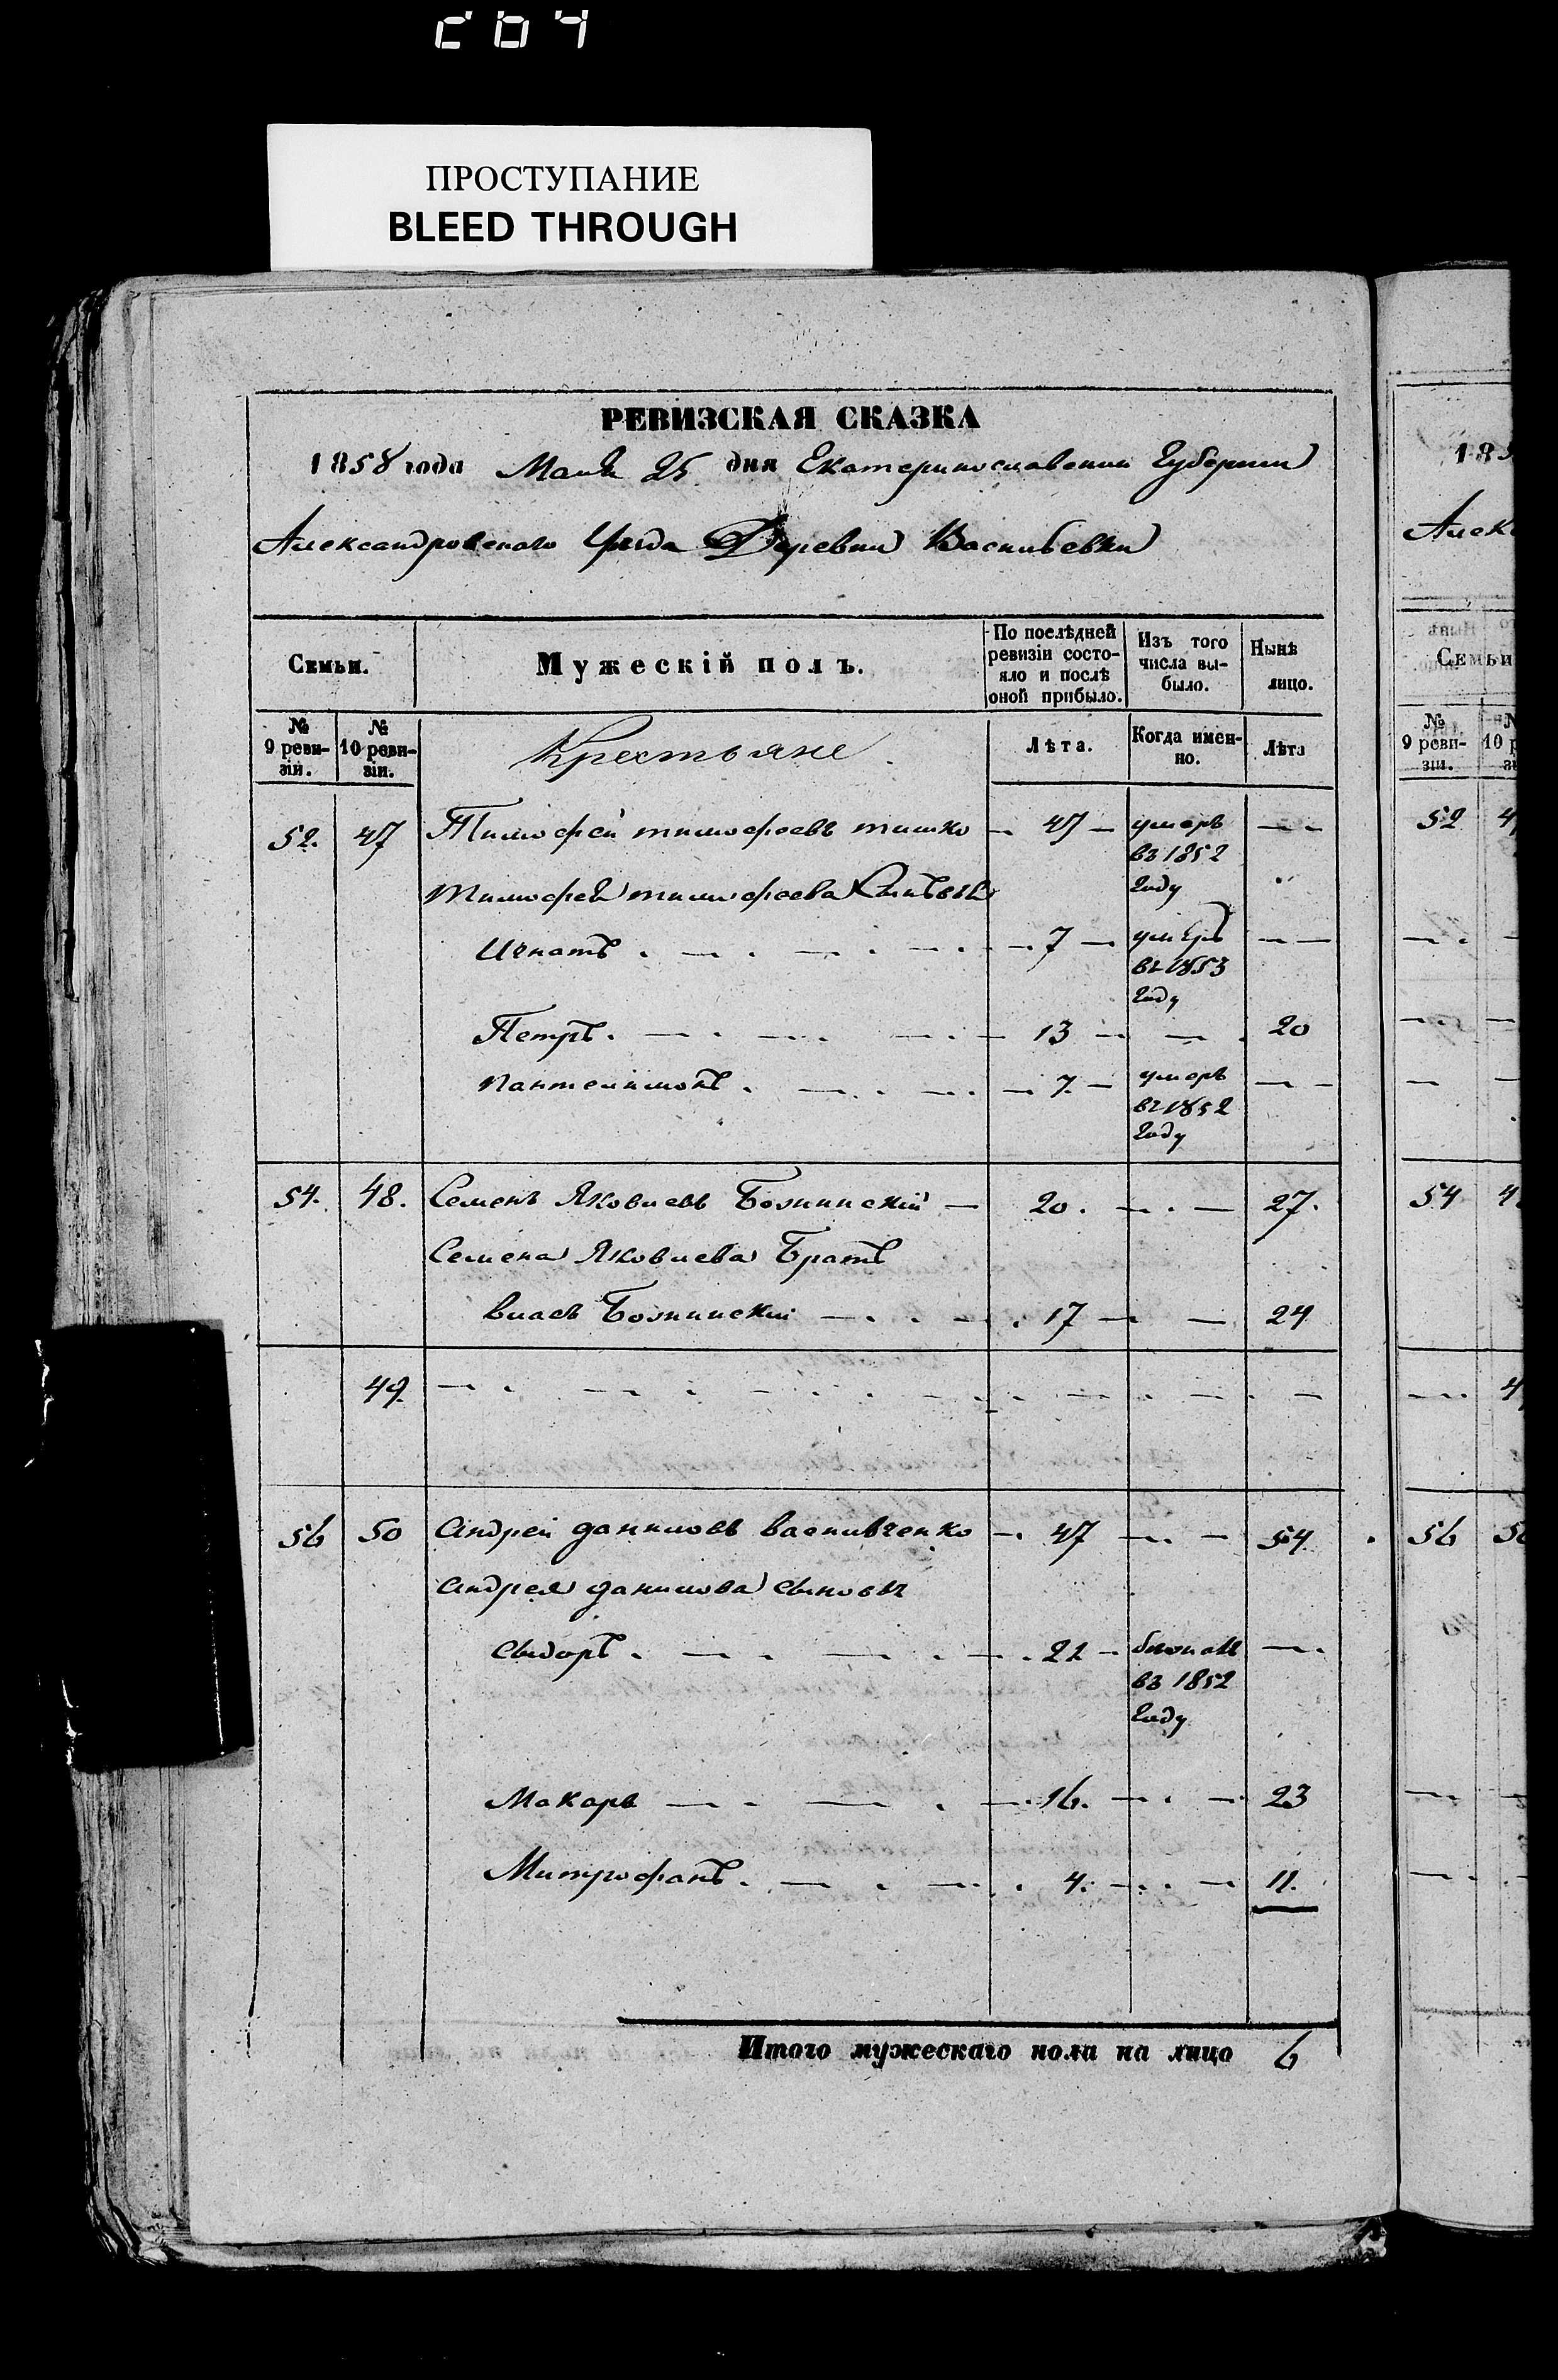 ПРОСТУПАНИЕ
BLEED THROUGH
РЕВИЗСКАЯ СКАЗКА
1858 года Маия 25 дня Екатеринославской Губернии
Александровского Уезда Деревни Васильевки
Семьи. Мужескій полъ. По послѣдней ревизіи состояло и послѣ оной прибыло. Изъ того числа выбыло. Нынѣ лицо.
№ 9 ревизіи. № 10 ревизіи. Крестьяне Лѣта. Когда именно. Лѣта
52. 47 Тимофей тимофеевъ тишко — 47 — умеръ въ 1852 году — —
тимофея тимофеева Сыновья
Игнатъ . — . — . — . — 7 — умеръ въ 1853 году — —
Петръ . — . — . — . — 13 — — . 20
пантелимонъ . — . — . — 7. — умеръ въ 1852 году — —
54. 48. Семенъ Яковлевъ Божинскій — 20. — . — 27.
Семена Яковлева Братъ
власъ Божинскій — . . — . 17 — — 24
49. — . — . — . . — . — . — . —
56 50 андрей даниловъ василивченко — . 47 — . — 54
андрея данилова сыновья
сыдоръ . — . — . — . 22 — въ 1852 году — .
Макаръ — . — . — . 16. — . — 23
Митрофанъ . — . — . 4. — . — 11.
Итого мужескаго пола на лицо 6
185
Алек
Семьи
№ 9 ревизіи.
52
54
56